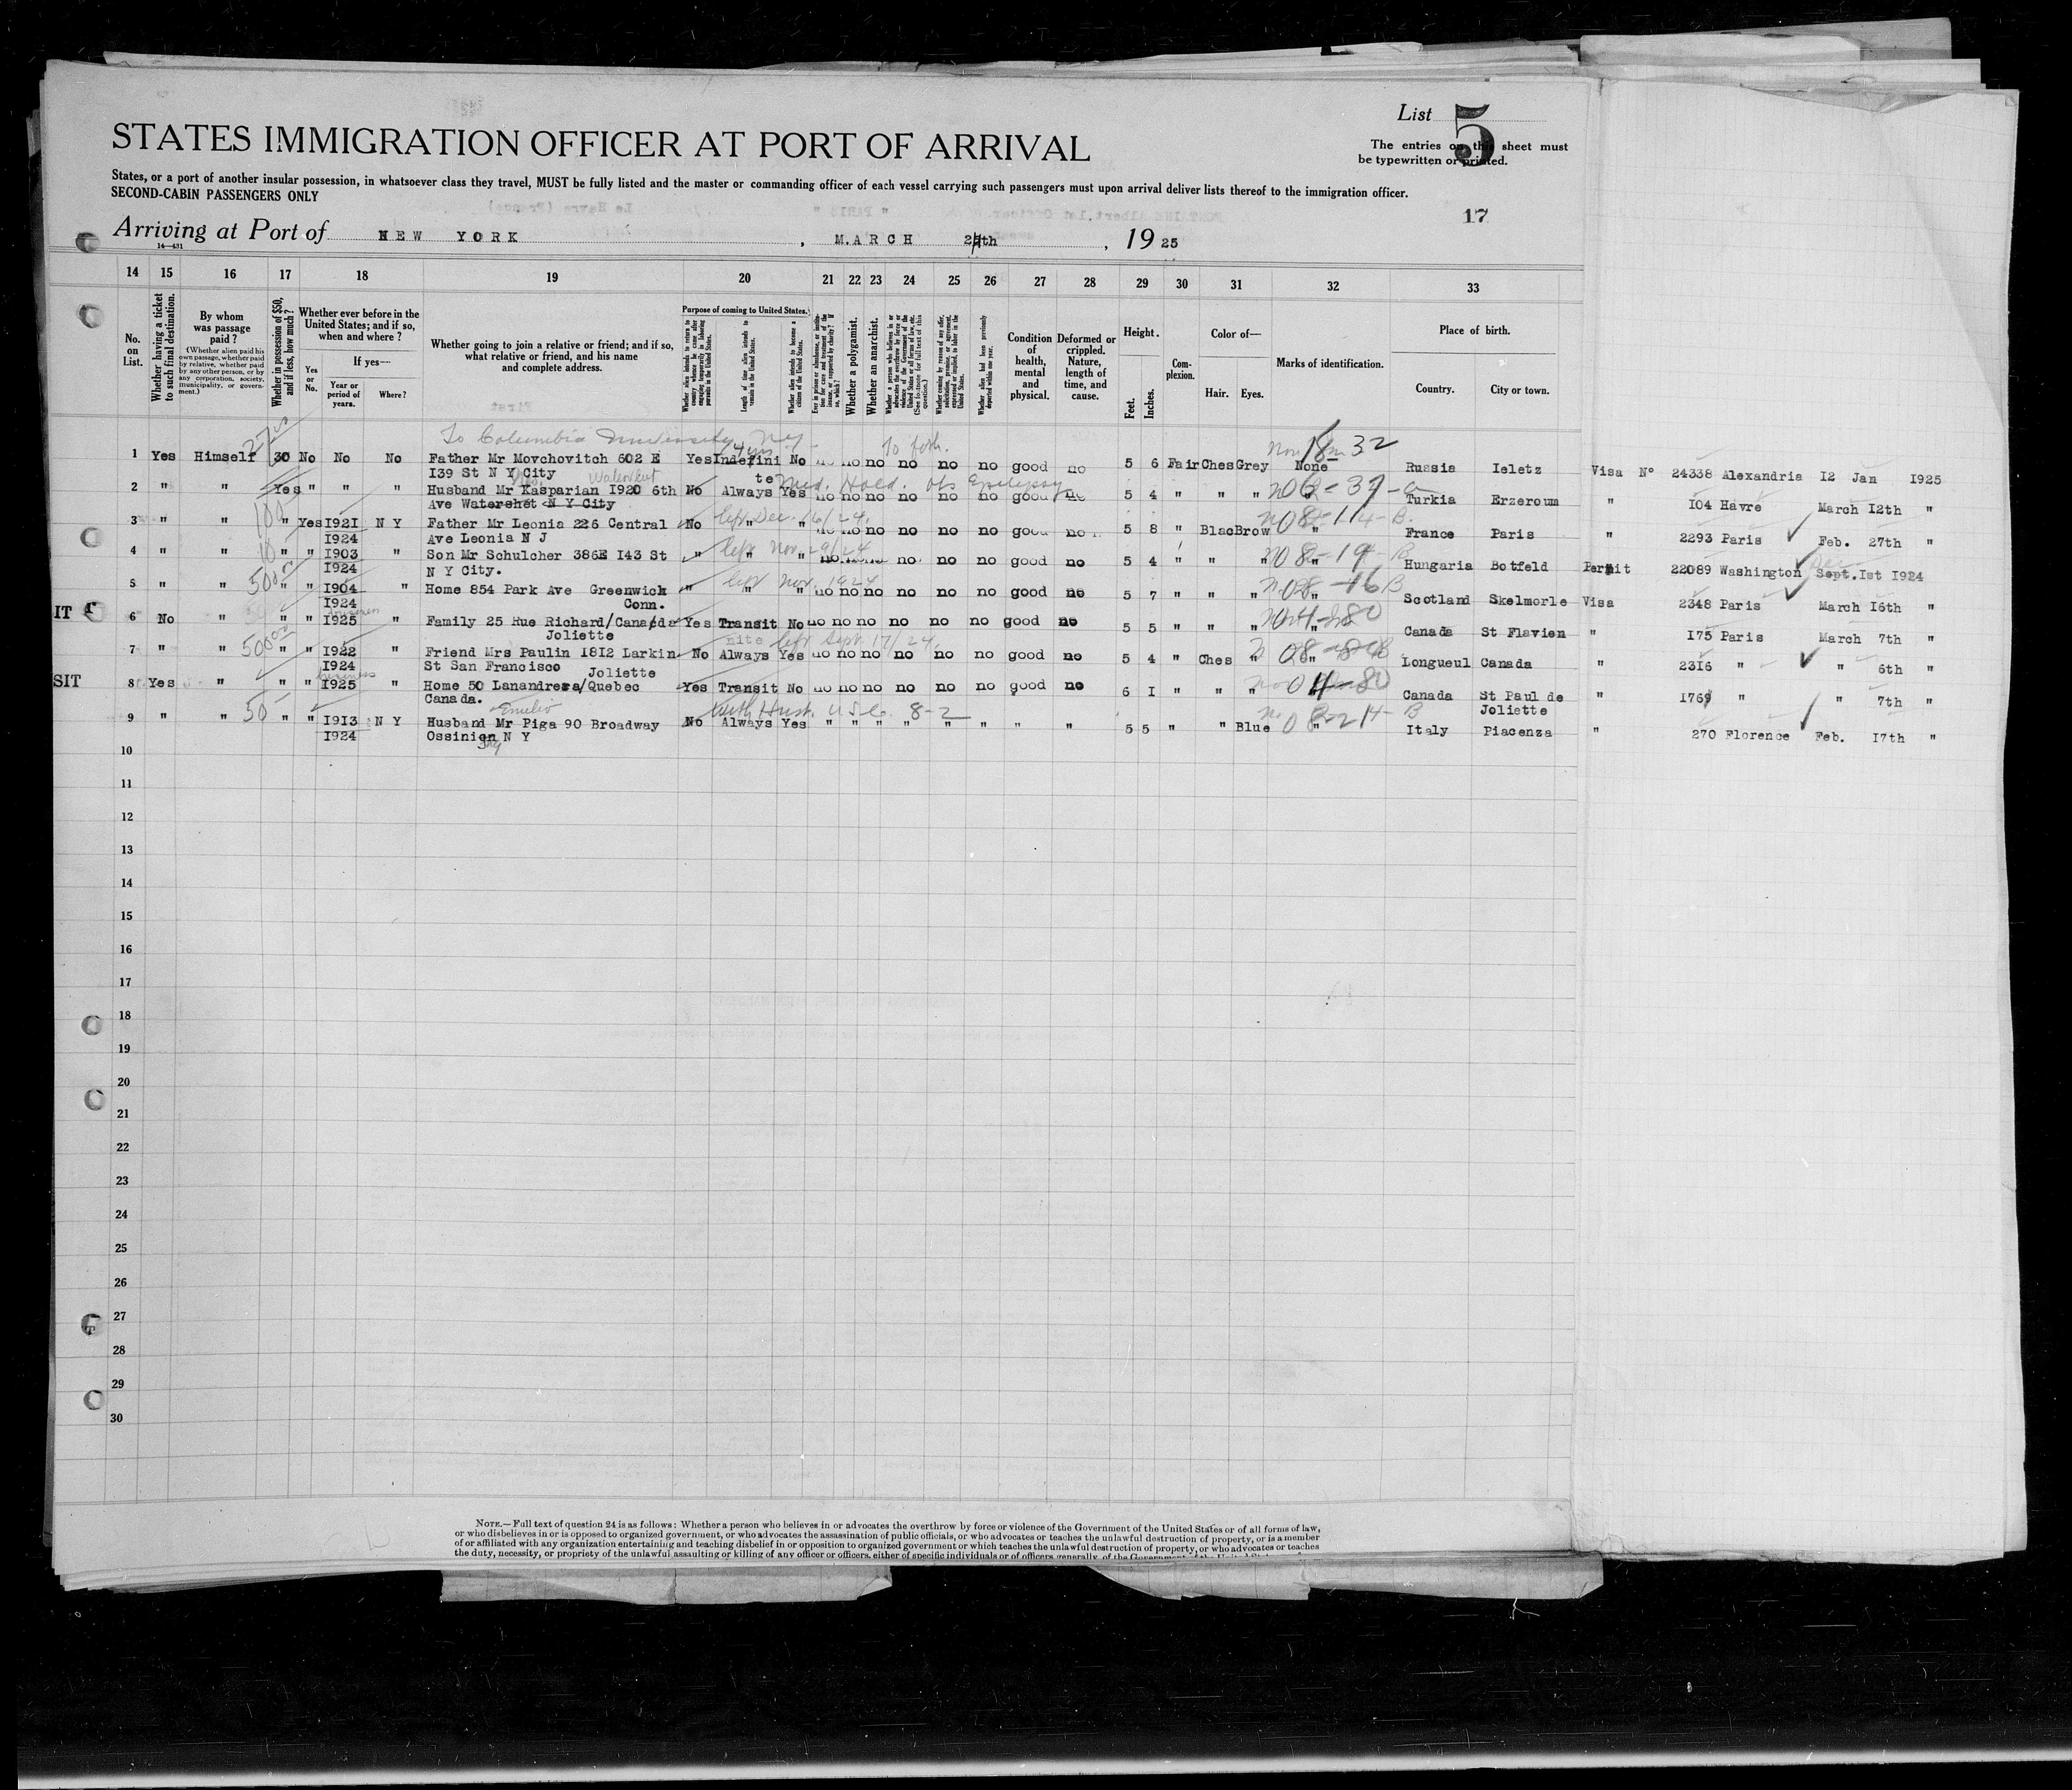 List 5
STATES IMMIGRATION OFFICER AT PORT OF ARRIVAL
The entries on this sheet must
be typewritten or printed.
States, or a port of another insular possession, in whatsoever class they travel, MUST be fully listed and the master or commanding officer of each vessel carrying such passengers must upon arrival deliver lists thereof to the immigration officer.
SECOND-CABIN PASSENGERS ONLY
17
Arriving at Port of NEW YORK, MARCH 24th, 1925
14—431
14 15 16 17 18 19 20 21 22 23 24 25 26 27 28 29 30 31 32 33
No. on List.
Whether having a ticket to such final destination.
By whom was passage paid?
(Whether alien paid his own passage, whether paid by relative, whether paid by any other person, or by any corporation, society, municipality, or government.)
Whether in possession of $50, and if less, how much?
Whether ever before in the United States; and if so, when and where?
Yes or No.
If yes—
Year or period of years.
Where?
Whether going to join a relative or friend; and if so, what relative or friend, and his name and complete address.
Purpose of coming to United States.
Length of time alien intends to remain in the United States.
Whether alien intends to become a citizen of the United States.
Whether a polygamist.
Whether an anarchist.
Condition of health, mental and physical.
Deformed or crippled. Nature, length of time, and cause.
Height.
Feet.
Inches.
Complexion.
Color of—
Hair. Eyes.
Marks of identification.
Place of birth.
Country. City or town.
To Columbia University, N.Y.
1 Yes Himself 30 No No No Father Mr Movchovitch 602 E Yes Indefini No no no no no no no good no 5 6 Fair Ches Grey None Russia Ieletz Visa N° 24338 Alexandria I2 Jan I925
I39 St N Y City te
Med. Hold. obs Epilepsy
2 " " Yes " " " Husband Mr Kasparian I920 6th No Always Yes no no no no no no good no 5 4 " " " " Turkia Erzeroum " I04 Havre March I2th "
Ave Watershet N Y City
left Dec. 16/24.
3 " " " Yes I92I N Y Father Mr Leonia 226 Central No " " no no no no no no good no 5 8 " Blac Brow " France Paris " 2293 Paris Feb. 27th "
I924 Ave Leonia N J
left Nov. 29/24
4 " " " " I903 " Son Mr Schulcher 386E I43 St " " " no no no no no no good no 5 4 " " " " Hungaria Botfeld Permit 22089 Washington Sept.Ist I924
I924 N Y City.
left Nov. 1924
5 " " " " I904 " Home 854 Park Ave Greenwick " " " no no no no no no good no 5 7 " " " " Scotland Skelmorle Visa 2348 Paris March I6th "
I924 Conn.
IT
6 No " " " I925 " Family 25 Rue Richard/Canada Yes Transit No no no no no no no good no 5 5 " " " Canada St Flavien " I75 Paris March 7th "
Joliette
left Sept. 17/24
7 " " " " I922 " Friend Mrs Paulin I8I2 Larkin No Always Yes no no no no no no good no 5 4 " Ches " " Longueul Canada " 23I6 " " 6th "
I924 St San Francisco
Joliette
SIT
8 Yes " " " I925 " Home 50 Lanandrera/Quebec Yes Transit No no no no no no no good no 6 I " " " Canada St Paul de " I769 " " 7th "
Canada. Joliette
Emilio
with Husb. U.S.C. 8-2
9 " " " " I9I3 N Y Husband Mr Piga 90 Broadway No Always Yes " " " " " " " " 5 5 " " Blue " Italy Piacenza " 270 Florence Feb. I7th "
I924 Ossinien N Y
10
11
12
13
14
15
16
17
18
19
20
21
22
23
24
25
26
27
28
29
30
NOTE.—Full text of question 24 is as follows: Whether a person who believes in or advocates the overthrow by force or violence of the Government of the United States or of all forms of law,
or who disbelieves in or is opposed to organized government, or who advocates the assassination of public officials, or who advocates or teaches the unlawful destruction of property, or is a member
of or affiliated with any organization entertaining and teaching disbelief in or opposition to organized government or which teaches the unlawful destruction of property, or who advocates or teaches
the duty, necessity, or propriety of the unlawful assaulting or killing of any officer or officers, either of specific individuals or of officers generally, of the Government of the United States